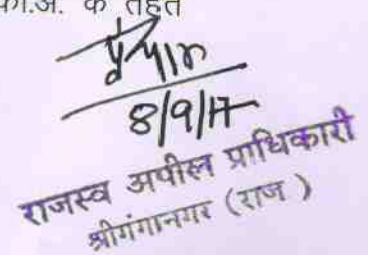 का.अ. के तहत
8/9/17
राजस्व अपील प्राधिकारी
श्रीगंगानगर (राज )